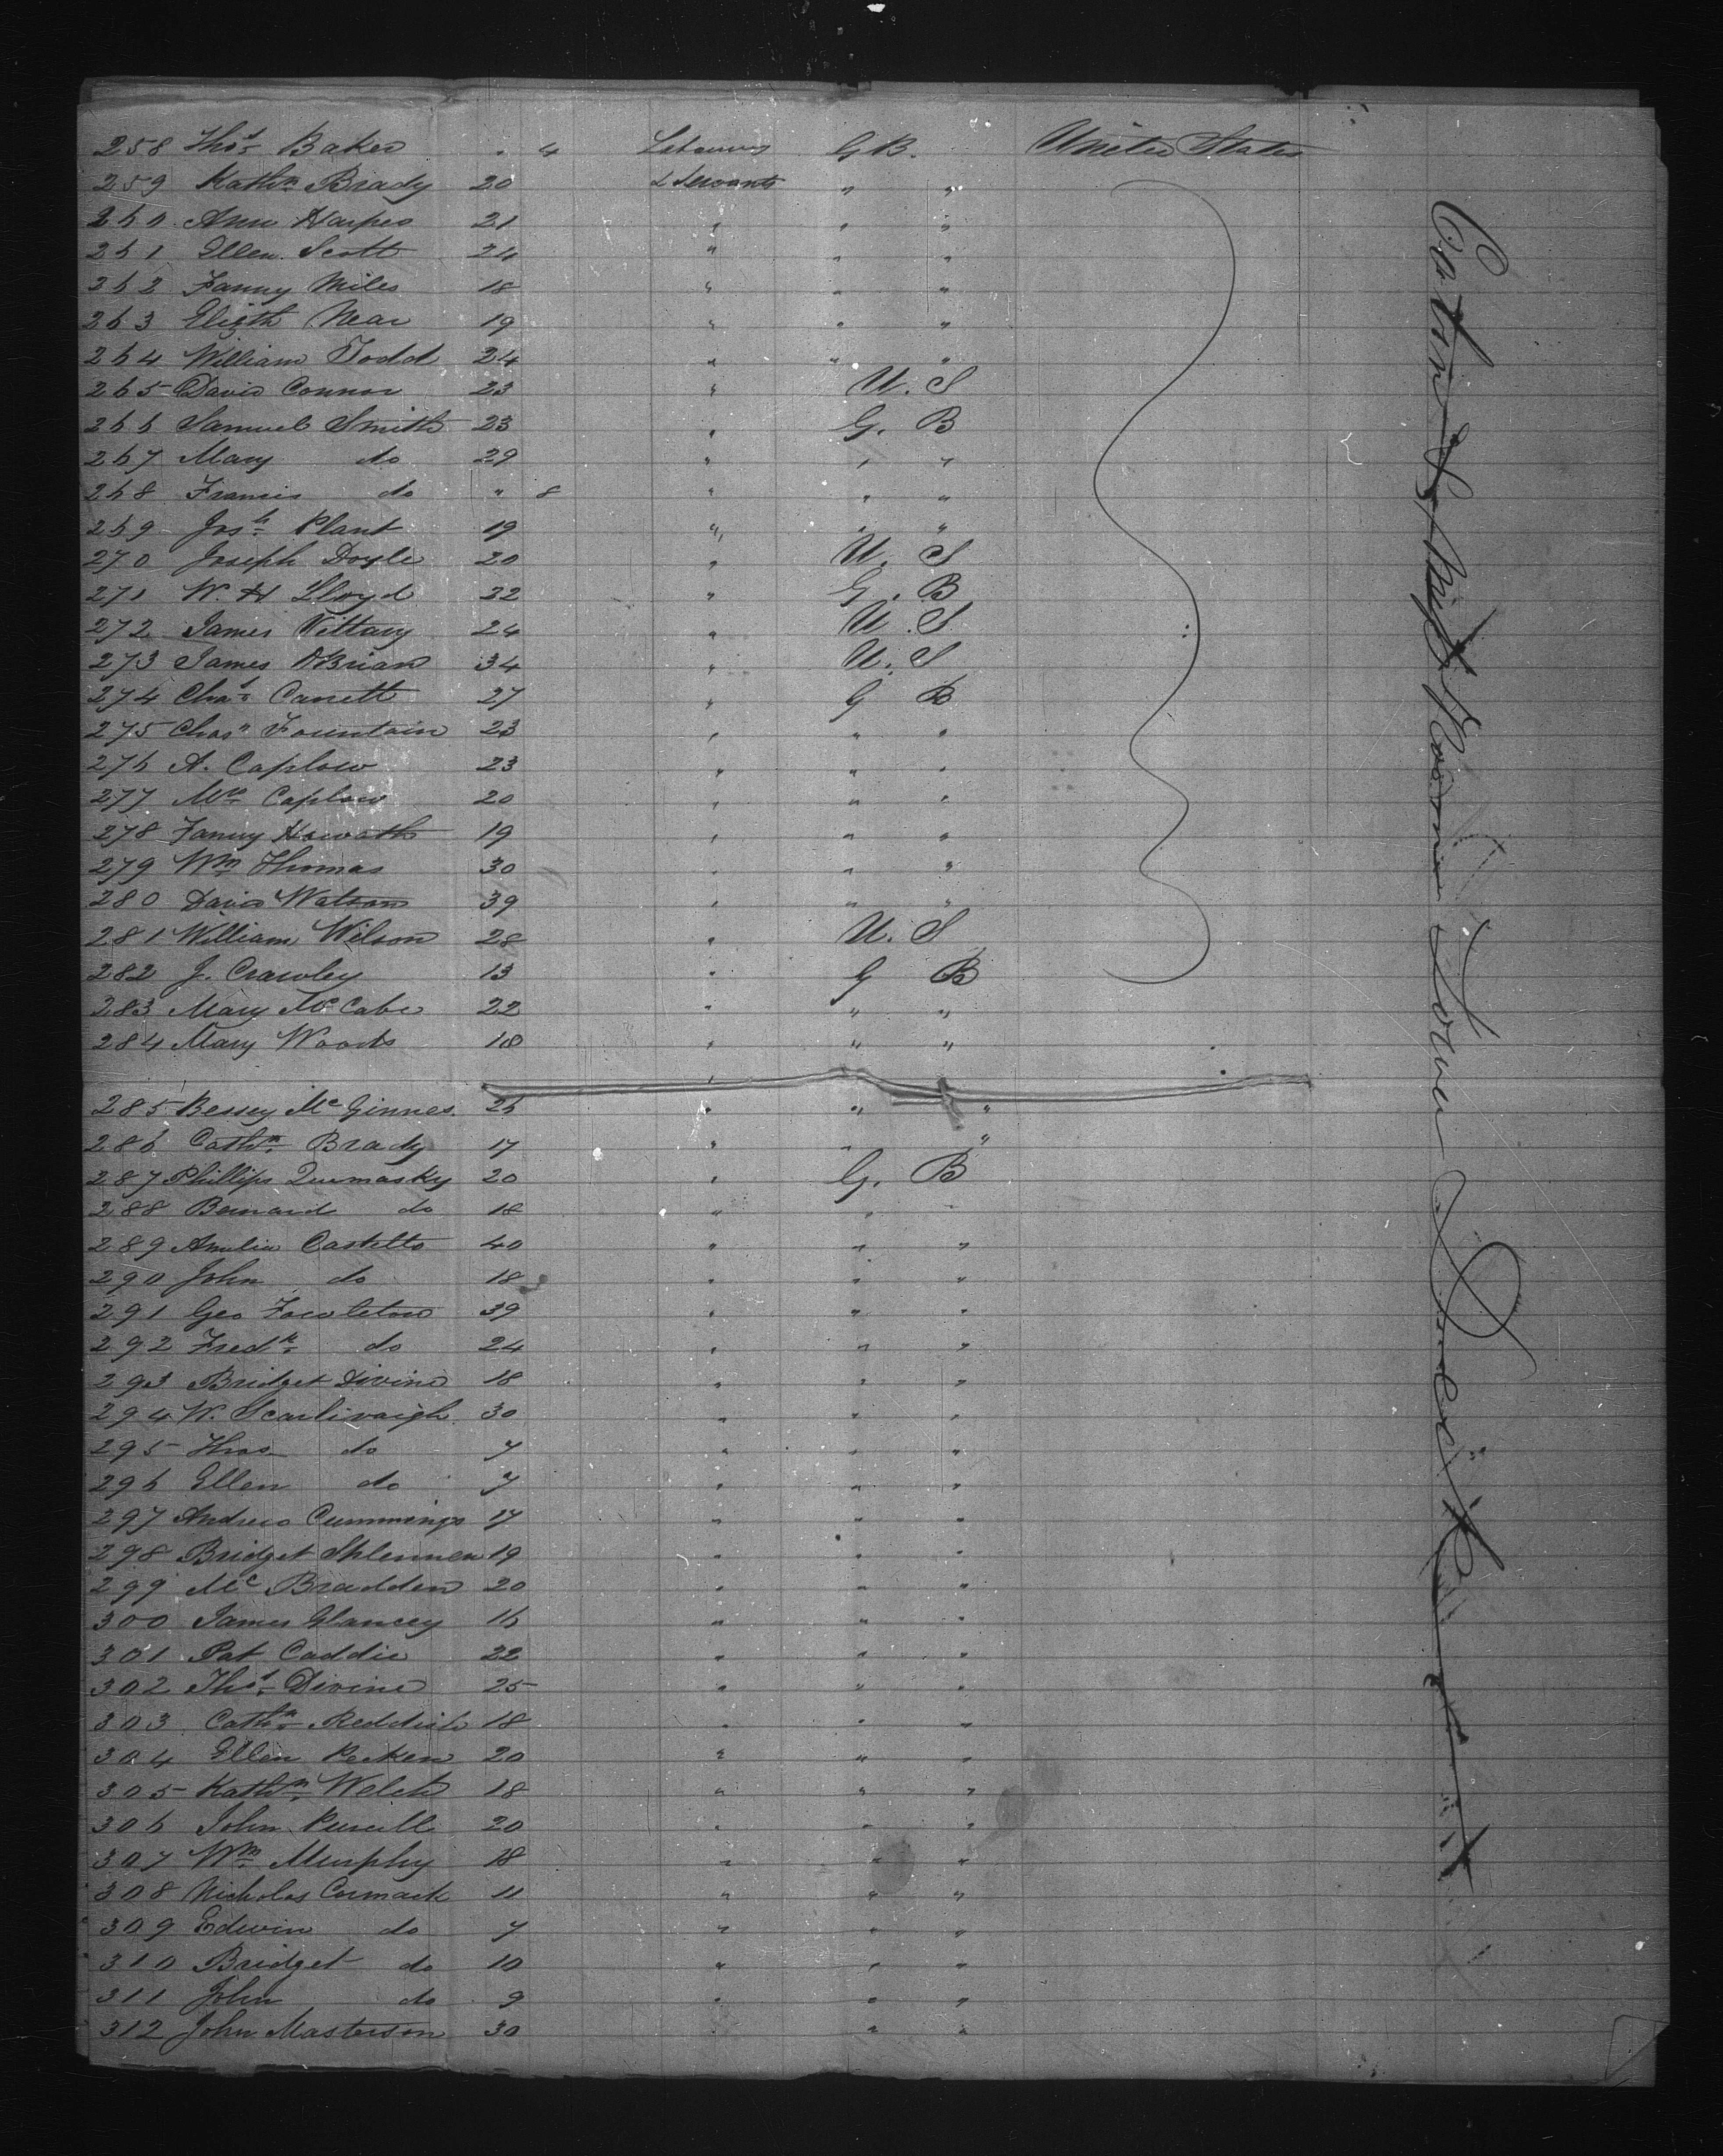 258 Thos Baker " 4 Labourers G B. United States
259 Kathn Brady 20 & Servants " "
260 Ann Harper 21 " " "
261 Ellen Scott 24 " " "
262 Fanny Miles 18 " " "
263 Elizth Near 19 " " "
264 William Todd 24 " " "
265 David Connor 23 " U. S
266 Samuel Smith 23 " G. B
267 Mary do 29 " " "
268 Francis do " 8 " " "
269 Josh Plant 19 " " "
270 Joseph Doyle 20 " U. S
271 W. H Lloyd 32 " G. B
272 James 24 " U. S
273 James O'Brian 34 " U. S
274 Chas 27 " G B
275 Chas Fountain 23 " " "
276 A. Caplow 23 " " "
277 Mrs Caplow 20 " " "
278 Fanny Howath 19 " " "
279 Wm Thomas 30 " " "
280 David Watson 39 " " "
281 William Wilson 28 " U. S
282 J. Crawley 13 " G B
283 Mary McCabe 22 " " "
284 Mary Woods 18 " " "
285 Bessey McGinnes 26 " " "
286 Cathn Brady 17 " " "
287 Phillips 20 " G. B
288 Bernard do 18 " " "
289 Amelia Castello 40 " " "
290 John do 18 " " "
291 Geo 39 " " "
292 Fredk do 24 " " "
293 Bridget Divine 18 " " "
294 W. 30 " " "
295 Thos do 7 " " "
296 Ellen do 7 " " "
297 Andrew Cummings 17 " " "
298 Bridget 19 " " "
299 Mc Bradden 20 " " "
300 James Glancey 16 " " "
301 Pat Caddie 22 " " "
302 Thos Divine 25 " " "
303 Cathn Reddish 18 " " "
304 Ellen 20 " " "
305 Kathn Welch 18 " " "
306 John Purcell 20 " " "
307 Wm Murphy 18 " " "
308 Nicholas Cormack 11 " " "
309 Edwin do 7 " " "
310 Bridget do 10 " " "
311 John do 9 " " "
312 John Masterson 30 " "